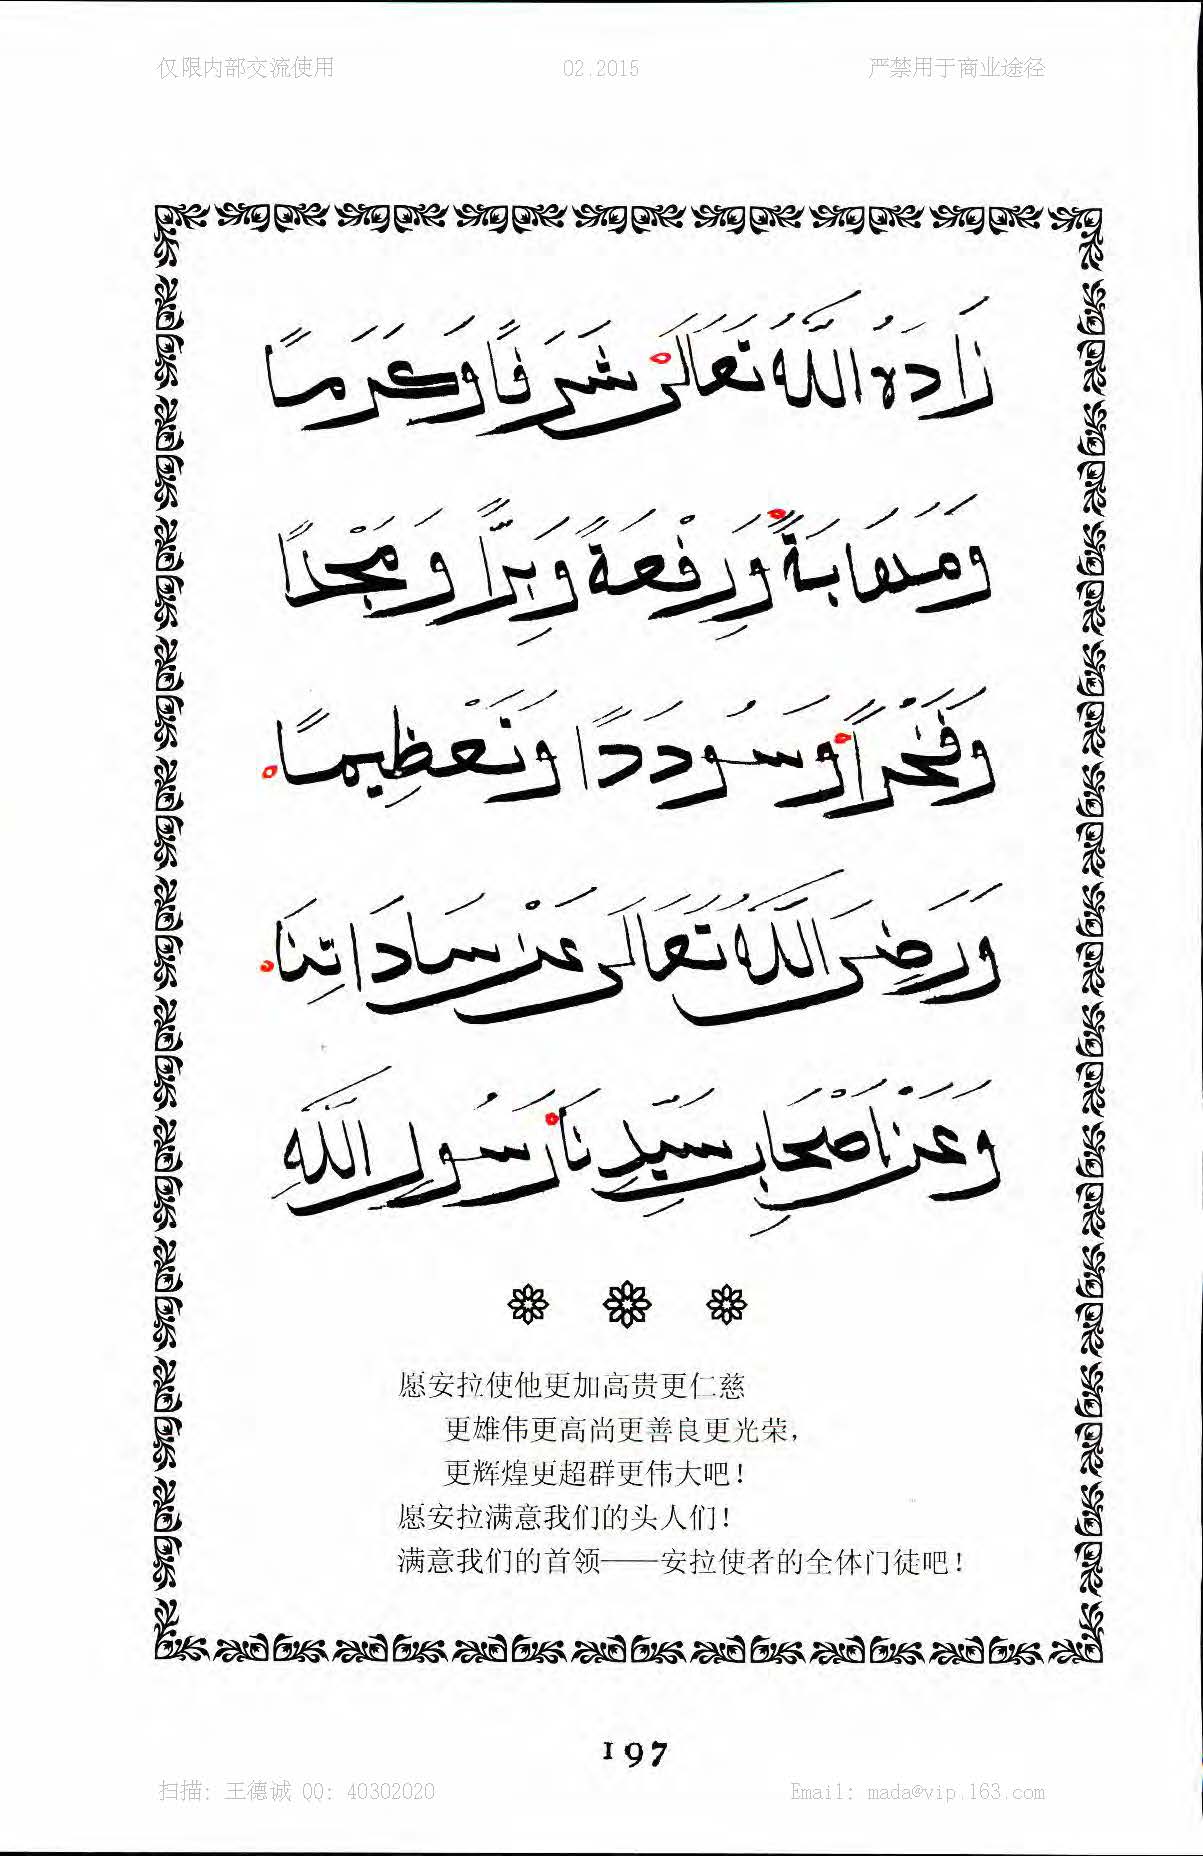 仅限内部交流使用 02.2015 严禁用于商业途径
زَادَهُ اللَّهُ تَعَالَى شَرَفًا وَكَرَمًا
وَمَهَابَةً وَرِفْعَةً وَبِرًّا وَمَجْدًا
وَفَخْرًا وَسُودَدًا وَتَعْظِيمًا
وَرَضِيَ اللَّهُ تَعَالَى عَنْ سَادَاتِنَا
وَعَنْ اَصْحَابِ سَيِّدِنَا رَسُولِ اللَّهِ
愿安拉使他更加高贵更仁慈
更雄伟更高尚更善良更光荣,
更辉煌更超群更伟大吧!
愿安拉满意我们的头人们!
满意我们的首领——安拉使者的全体门徒吧!
197
扫描: 王德诚 QQ: 40302020 Email: mada@vip.163.com